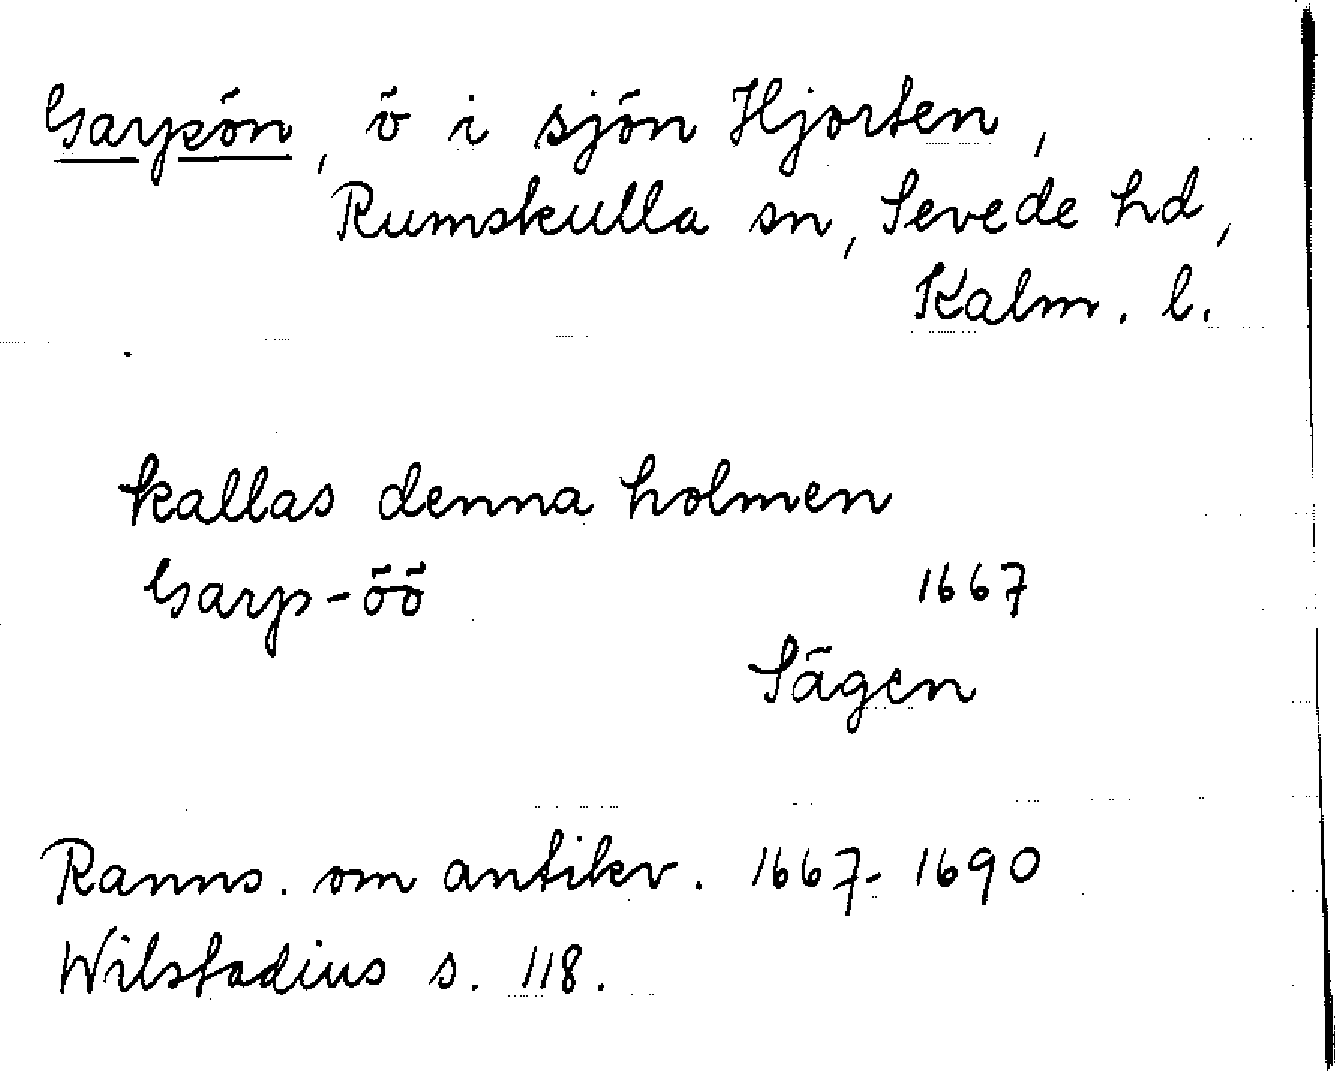 Garpön, ö i sjön Hjorten,
Rumskulla sn, Sevede hd,
Kalm. l.
kallas denna holmen
Garp-öö 1667
Sägen
Ranns. om antikv. 1667-1690
Wilstadius s. 118.